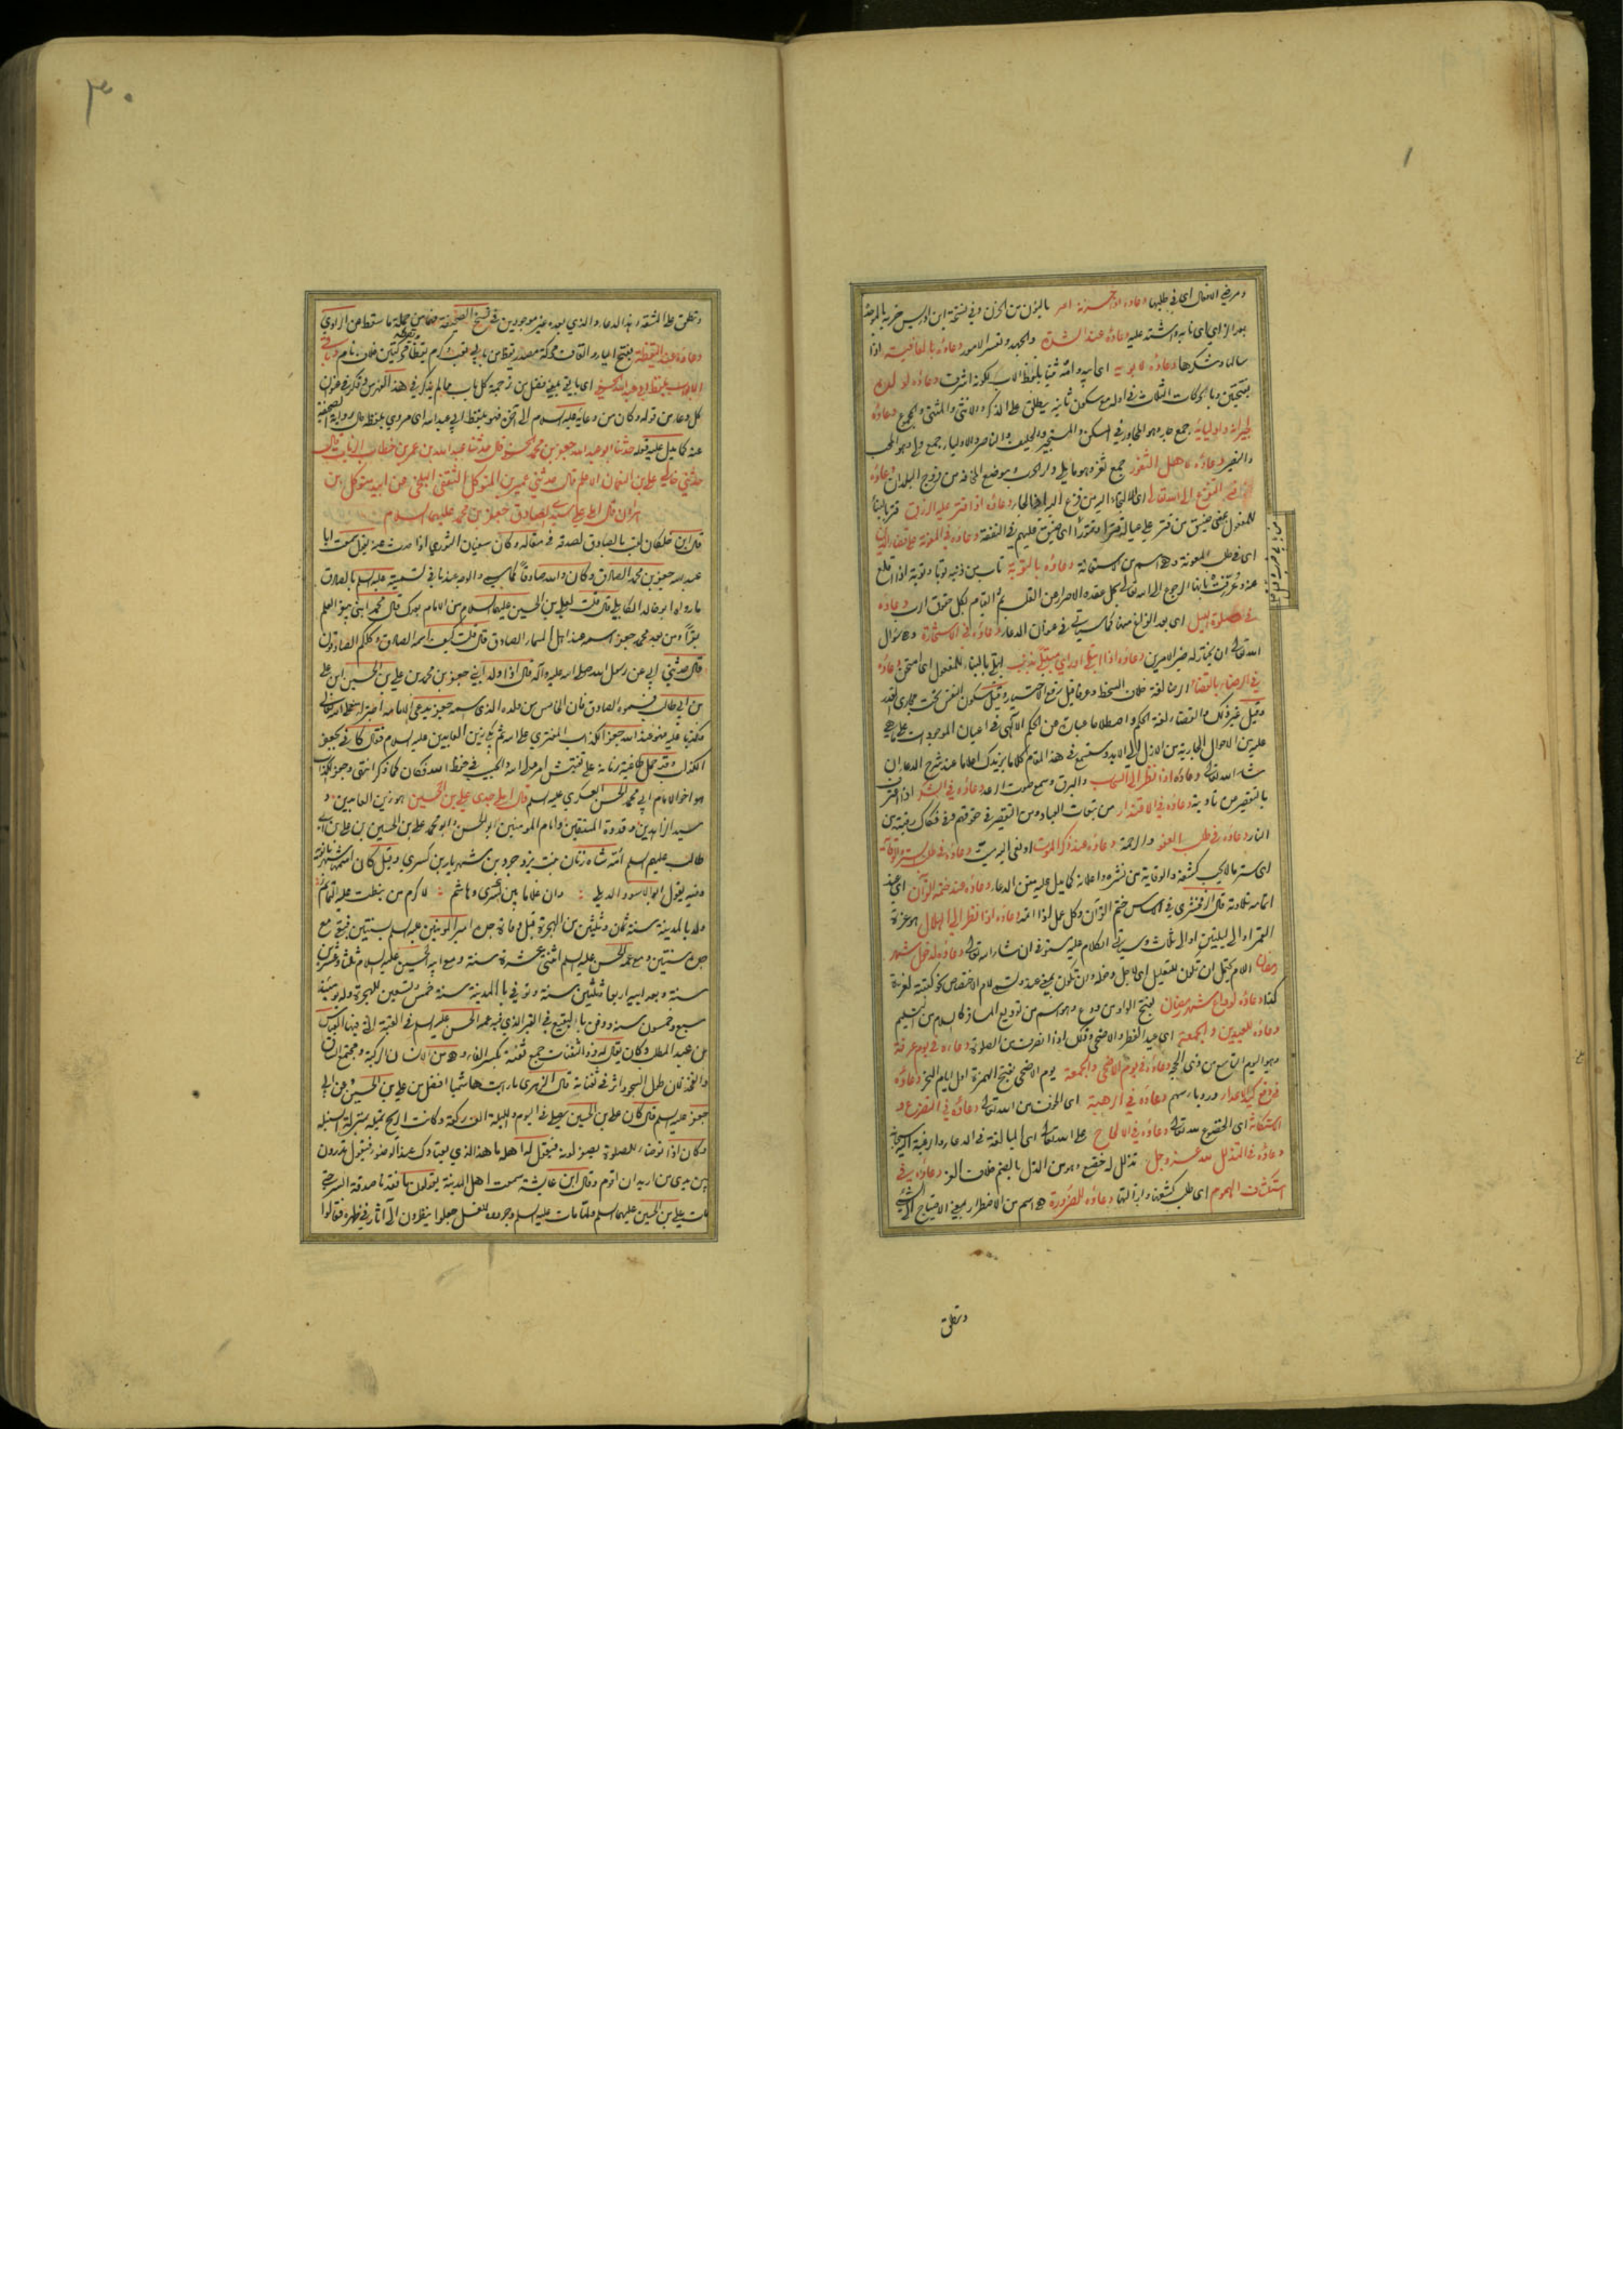 ومرضي الافعال اي في طلبها دعاؤه اذا حزنه امر بالنون من الحزن وفي نسخة ابن ادريس حزبه بالموحدة
بعد الزاي اي نابه واشتد عليه دعاؤه عند الشدة والجهد وتعسر الامور دعاؤه بالعافية اذا
سالها وشكرها دعاؤه لابويه اي ابيه وامه ثنيا بلفظ الاب لكونه اشرف دعاؤه لولده
بفتحتين وبالحركات الثلاث في اوله مع سكون ثانيه يطلق على الذكر والانثى والمثنى والمجموع دعاؤه
لجيرانه واوليائه جمع جار وهو المجاور في السكن والمستجير والحليف والناصر والاولياء جمع ولي وهو المحب
والنصير دعاؤه لاهل الثغور جمع ثغر وهو ما يلي دار الحرب وموضع المخافة من فروج البلدان دعاؤه
التفزع الى الله تعالى اي الالتجاء اليه من فزع اليه اي لجأ دعاؤه اذا قتر عليه الرزق قتر بالبناء
للمفعول بمعنى ضيق من قتر على عياله قترا وقتورا اي ضيق عليهم في النفقة دعاؤه في المعونة على قضاء الدين
اي في طلب المعونة وهي اسم من الاستعانة دعاؤه بالتوبة تاب من ذنبه توبا وتوبة اذا اقلع
عنه وعرفت بانها الرجوع الى الله تعالى بحل عقدة الاصرار عن القلب ثم القيام بكل حقوق الرب دعاؤه
في صلوة الليل اي بعد الفراغ منها كما سياتي في عنوان الدعاء دعاؤه في الاستخارة وهي سؤال
الله تعالى ان يختار له خير الامرين دعاؤه اذا ابتلي او راى مبتلى بذنب ابتلي بالبناء للمفعول اي امتحن دعاؤه
في الرضا بالقضاء الرضا لغة خلاف السخط وعرفا قيل رفع الاختيار وقيل سكون النفس تحت مجاري القدر
وقيل غير ذلك والقضاء لغة الحكم واصطلاحا عبارة عن الحكم الالهي في اعيان الموجودات على ما هي
عليه من الاحوال الجارية من الازل الى الابد وستسمع في هذا المقام كلاما يزيدك اعلاما عند شرح الدعاء ان
شاء الله تعالى دعاؤه اذا نظر الى السحاب والبرق وسمع صوت الرعد دعاؤه في الشكر اذا اعترف
بالتقصير عن تادية دعاؤه في الاعتذار من تبعات العباد ومن التقصير في حقوقهم وفي فكاك رقبته من
النار دعاؤه في طلب العفو والرحمة دعاؤه عند ذكر الموت او نعي اليه ميت دعاؤه في طلب الستر والوقاية
اي ستر ما لا يحب كشفه والوقاية من نشره واعلانه كما يدل عليه متن الدعاء دعاؤه عند ختمه القرآن اي عند
اتمامه تلاوته قال الزمخشري في الاساس ختم القرآن وكل عمل اذا اتمه دعاؤه اذا نظر الى الهلال هو غرة
القمر او الى ليلتين او الى ثلاث وسياتي الكلام عليه مستوفى ان شاء الله تعالى دعاؤه لدخول شهر
رمضان اللام يحتمل ان تكون للتعليل اي لاجل دخوله وان تكون بمعنى عند وتسمى لام الاختصاص نحو كتبته لغرة
كذا دعاؤه لوداع شهر رمضان بفتح الواو من ودع وهو اسم من توديع المسافر كالسلام من التسليم
دعاؤه للعيدين والجمعة اي عيد الفطر والاضحى وقيل اذا انصرف من الصلوة دعاؤه في يوم عرفة
وهو اليوم التاسع من ذي الحجة دعاؤه في يوم الاضحى والجمعة يوم الاضحى بفتح الهمزة اول ايام النحر دعاؤه
في دفع كيد الاعداء ورد باسهم دعاؤه في الرهبة اي الخوف من الله تعالى دعاؤه في التضرع و
الاستكانة اي الخضوع لله تعالى دعاؤه في الالحاح على الله تعالى اي المبالغة في الدعاء والرغبة اليه سبحانه
دعاؤه في التذلل لله عز وجل تذلل له خضع وهو من الذل بالضم خلاف العز دعاؤه في
استكشاف الهموم اي طلب كشفها وازالتها دعاؤه للضرورة هي اسم من الاضطرار بمعنى الاحتياج الى الشيء
وتطلق
٣٠
وتطلق على المشقة وهذا الدعاء والذي بعده غير موجودين في نسخ الصحيفة فهما من جملة ما سقط عن الراوي
دعاؤه عند اليقظة بفتح الياء والقاف محركة مصدر يقظ من باب تعب وكرم يقظا محركتين خلاف نام وباقي
الابواب بلفظ ابي عبد الله الحسني اي باقي
كل دعاء من قوله وكان من دعائه عليه السلام الى آخره فهو بلفظ ابي عبد الله اي مروي بلفظه على رواية الصحيفة
عنه كما يدل عليه قوله حدثنا ابو عبد الله جعفر بن محمد الحسني قال حدثنا عبد الله بن عمر بن خطاب الزيات قال
حدثني خالي علي بن النعمان الاعلم قال حدثني عمير بن المتوكل الثقفي البلخي عن ابيه متوكل بن
هرون قال املى علي سيدي الصادق جعفر بن محمد عليهما السلام
قال ابن خلكان لقب بالصادق لصدقه في مقاله وكان سفيان الثوري اذا حدث عنه يقول سمعت ابا
عبد الله جعفر بن محمد الصادق وكان والله صادقا كما سمي والوجه عندنا في تسميته عليه السلم بالصادق
ما رواه ابو خالد الكابلي قال قلت لعلي بن الحسين عليه السلام من الامام بعدك قال محمد ابني يبقر العلم
بقرا ومن بعد محمد جعفر اسمه عند اهل السماء الصادق قال قلت كيف اسمه الصادق وكلكم الصادقون
قال حدثني ابي عن رسول الله صلى الله عليه وآله قال اذا ولد ابني جعفر بن محمد بن علي بن الحسين بن علي
بن ابي طالب فسموه الصادق فان الخامس من ولده الذي اسمه جعفر يدعي الامامة
فهو عند الله جعفر الكذاب المفتري على الله ثم بكى زين العابدين عليه السلام فقال كاني بجعفر
الكذاب وقد حمل طاغية زمانه على تفتيش امر ولي الله والمغيب في حفظ الله فكان كما ذكر انتهى وجعفر الكذاب
هو اخو الامام ابي محمد الحسن العسكري عليه السلم قال املى جدي علي بن الحسين هو زين العابدين و
سيد الزاهدين وقدوة المتقين وامام المومنين ابو الحسن وابو محمد علي بن الحسين بن علي بن ابي
طالب عليهم السلم امه شاه زنان بنت يزدجرد بن شهريار بن كسرى وقيل كان اسمها شهربانويه
وفيه يقول ابو الاسود الدئلي وان غلاما بين كسرى وهاشم لاكرم من نيطت عليه التمائم
ولد بالمدينة سنة ثمان وثلثين من الهجرة قبل وفاة جده امير المومنين عليه السلم بسنتين فبقي مع
جده سنتين ومع عمه الحسن عليه السلم اثنتي عشرة سنة ومع ابيه الحسين عليه السلام ثلثا وعشرين
سنة وبعد ابيه اربعا وثلثين سنة وتوفي بالمدينة سنة خمس وتسعين للهجرة وله يومئذ
سبع وخمسون سنة ودفن بالبقيع في القبر الذي فيه عمه الحسن عليه السلم في القبة التي فيها العباس
بن عبد المطلب وكان يقال له ذو الثفنات جمع ثفنة بكسر الفاء وهي من الانسان الركبة ومجتمع الساق
والفخذ لان طول السجود اثر في ثفناته قال الزهري ما رايت هاشميا افضل من علي بن الحسين وعن ابي
جعفر عليه السلم قال كان علي بن الحسين يصلي في اليوم والليلة الف ركعة وكانت الريح تميله بمنزلة السنبلة
وكان اذا توضا للصلوة يصفر لونه فيقول له اهله ما هذا الذي يعتادك عند الوضوء فيقول تدرون
بين يدي من اريد ان اقوم وقال ابن عايشة سمعت اهل المدينة يقولون ما فقدنا صدقة السر حتى
مات علي بن الحسين عليهما السلم ولما مات عليه السلم وجردوه للغسل جعلوا ينظرون الى آثار في ظهره فقالوا